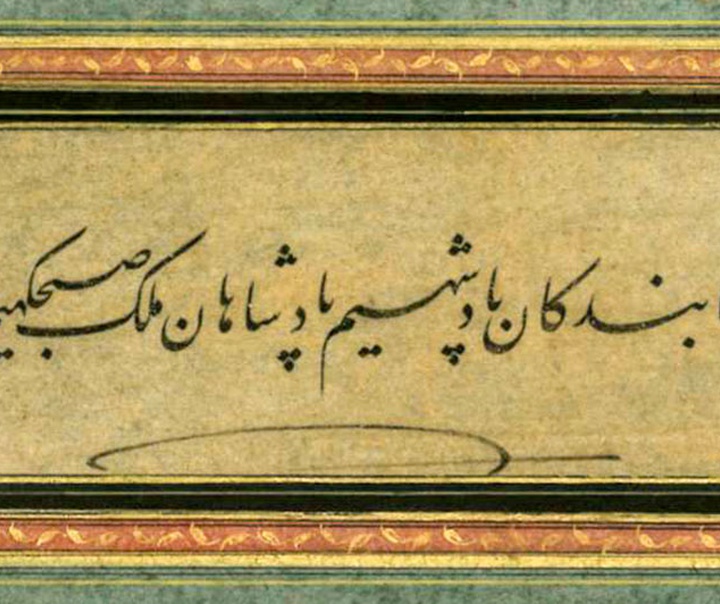 بندگان پادشهیم پادشاهان ملک صبحگهیم